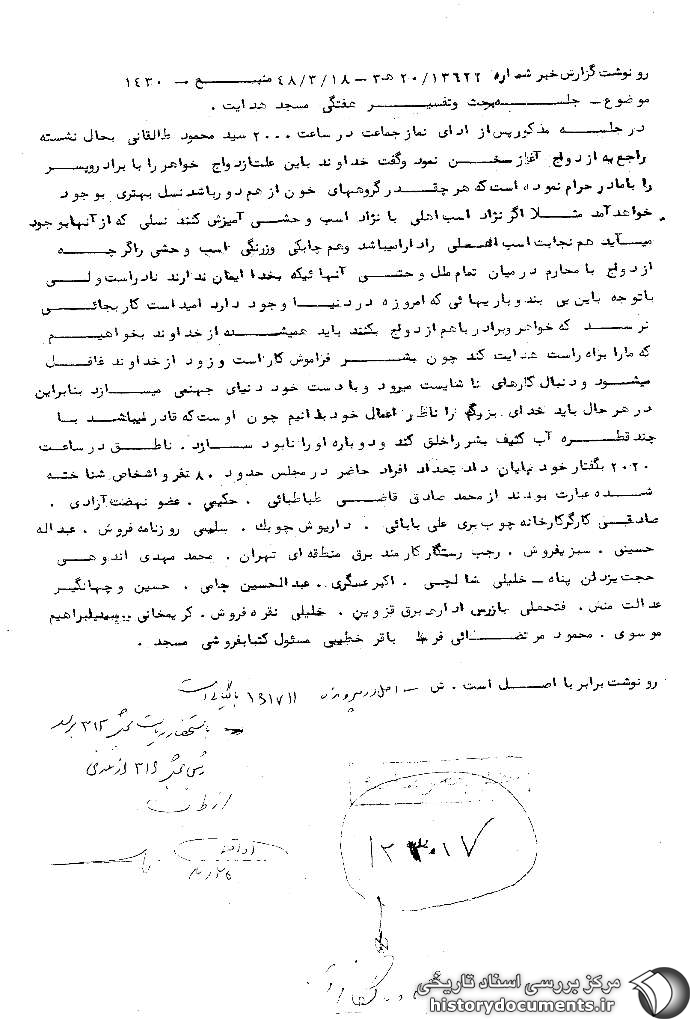 رونوشت گزارش خبر شماره ۲۰/۱۳۶۲۲ هـ۳ – ۴۸/۳/۱۸ منبع – ۱۴۳۰
موضوع – جلسه بحث و تفسیر هفتگی مسجد هدایت .
در جلسه مذکور پس از ادای نماز جماعت در ساعت ۲۰۰۰ سید محمود طالقانی بحال نشسته
راجع به ازدواج آغاز سخن نمود و گفت خداوند باین علت ازدواج خواهر را با برادر و پسر
را با مادر حرام نموده است که هر چقدر گروههای خون از هم دور باشد نسل بهتری بوجود
خواهد آمد مثلا اگر نژاد اسب اهلی با نژاد اسب وحشی آمیزش کنند نسلی که از آنها بوجود
میآید هم نجابت اسب را دارا میباشد وهم چابکی و زرنگی اسب وحشی را گر چه
ازدواج با محارم در میان تمام ملل و حتی آنهائیکه بخدا ایمان ندارند نادر است ولی
با توجه باین بی بند و باریهائی که امروزه در دنیا وجود دارد امید است کار بجائی
نرسد که خواهر و برادر با هم ازدواج بکنند باید همیشه از خداوند بخواهیم
که ما را براه راست هدایت کند چون بشر فراموش کار است و زود از خداوند غافل
میشود و دنبال کارهای نا شایست میرود و با دست خود دنیای جهنمی میسازد بنابراین
در هر حال باید خدای بزرگ را ناظر اعمال خود بدانیم چون اوست که قادر میباشد با
چند قطره آب کثیف بشر را خلق کند و دوباره او را نابود سازد . ناطق در ساعت
۲۰۲۰ بگفتار خود پایان داد تعداد افراد حاضر در مجلس حدود ۸۰ نفر و اشخاص شناخته
شده عبارت بودند از محمد صادق قاضی طباطبائی . حکیمی . عضو نهضت آزادی .
صادقی کارگر کارخانه چوب بری علی بابائی . داریوش چوبک . سلیمی روزنامه فروش . عبداله
حسینی . سبزیفروش . رجب رستگار کارمند برق منطقه ای تهران . محمد مهدی اندوهی
حجت یزدان پناه – خلیلی شالچی . اکبر عسگری . عبدالحسین جامی . حسین و جهانگیر
عدالت منش . فتحعلی بازرس اداره برق قزوین . خلیلی نقره فروش . کریمخانی . سید ابراهیم
موسوی . محمود مرتضائی فر . باقر خطیبی مسئول کتابفروشی مسجد .
رونوشت برابر با اصل است . ش – اصل در پرونده ۱۳۱۷۱۱ بایگانی است
۳۱۲
۳۱۶
مرکز بررسی اسناد تاریخی
historydocuments.ir